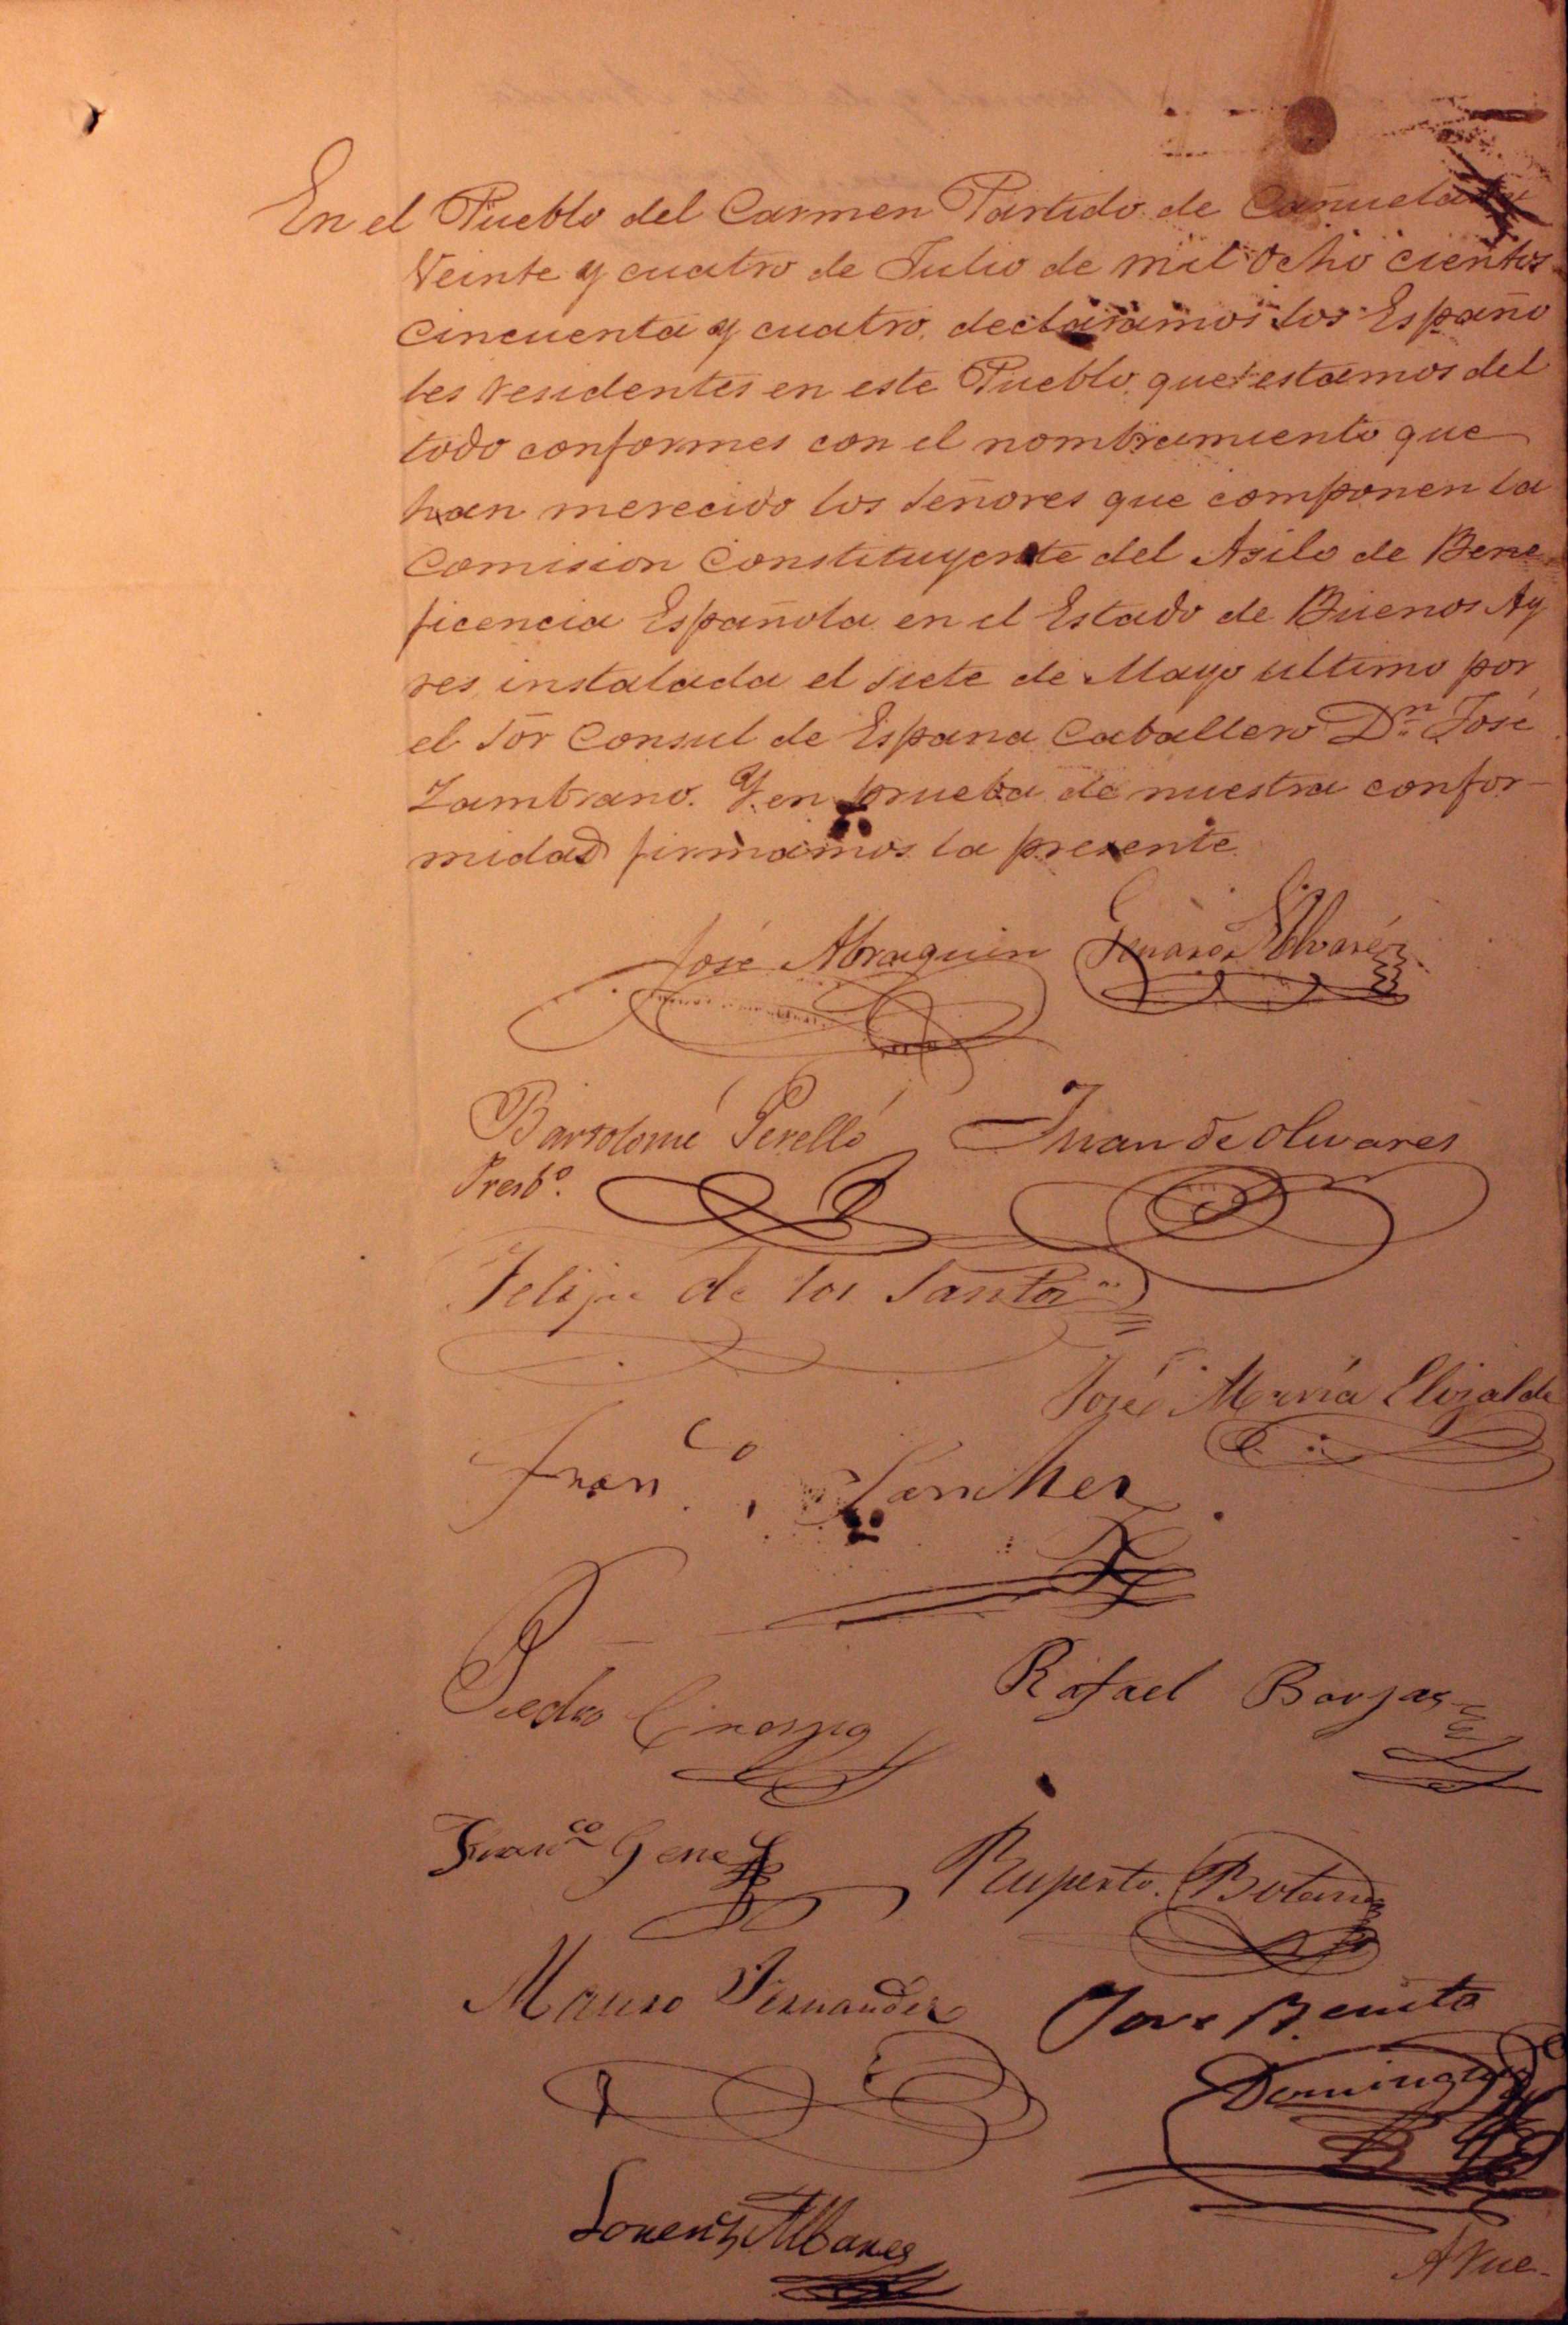 En el Pueblo del Carmen Partido de Cañuelas
Veinte y cuatro de Julio de mil ocho cientos
cincuenta y cuatro, declaramos los Españo
les residentes en este Pueblo, que estamos del
todo conformes con el nombramiento que
han merecido los Señores que componen la
Comision Constituyente del Asilo de Bene
ficencia Española en el Estado de Buenos Ay
res, instalada el siete de Mayo ultimo por
el Sõr Consul de España Caballero Dn. José
Zambrano. Y en prueba de nuestra confor-
midad firmamos la presente.
José Abraguin Genaro Alvarez
Bartolomé Perelló Juan de Olivares
Presbo.
Felipe de los Santos
José María Elizalde
Franco. Sanchez
Pedro
Rafael Barjas
Franco
Ruperto
Mauro Fernandez José Benito
Dominguez
Lorenzo Albares
A Vue-